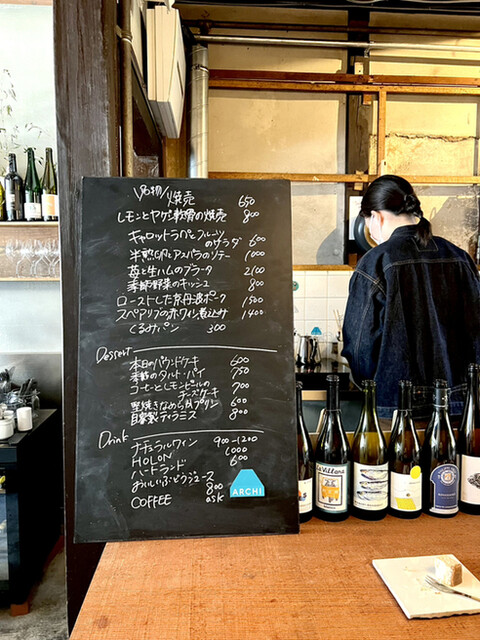 \名物/ 焼売 650
レモンとヤゲン軟骨の焼売 800
キャロットラペとフルーツ
のサラダ 600
半熟卵とアスパラのソテー 1000
苺と生ハムのブラータ 2100
季節野菜のキッシュ 800
ローストした京丹波ポーク 1500
スペアリブの赤ワイン煮込み 1400
くるみパン 300
Dessert
本日のパウンドケーキ 600
季節のタルト・パイ 750
コーヒーとレモンピールの 700
チーズケーキ
堅焼きなめらかプリン 600
自家製ティラミス 800
Drink
ナチュラルワイン 900-1200
HOLON 6000
ハートランド 600
おいしいぶどうジュース
800
COFFEE ask
ARCHI